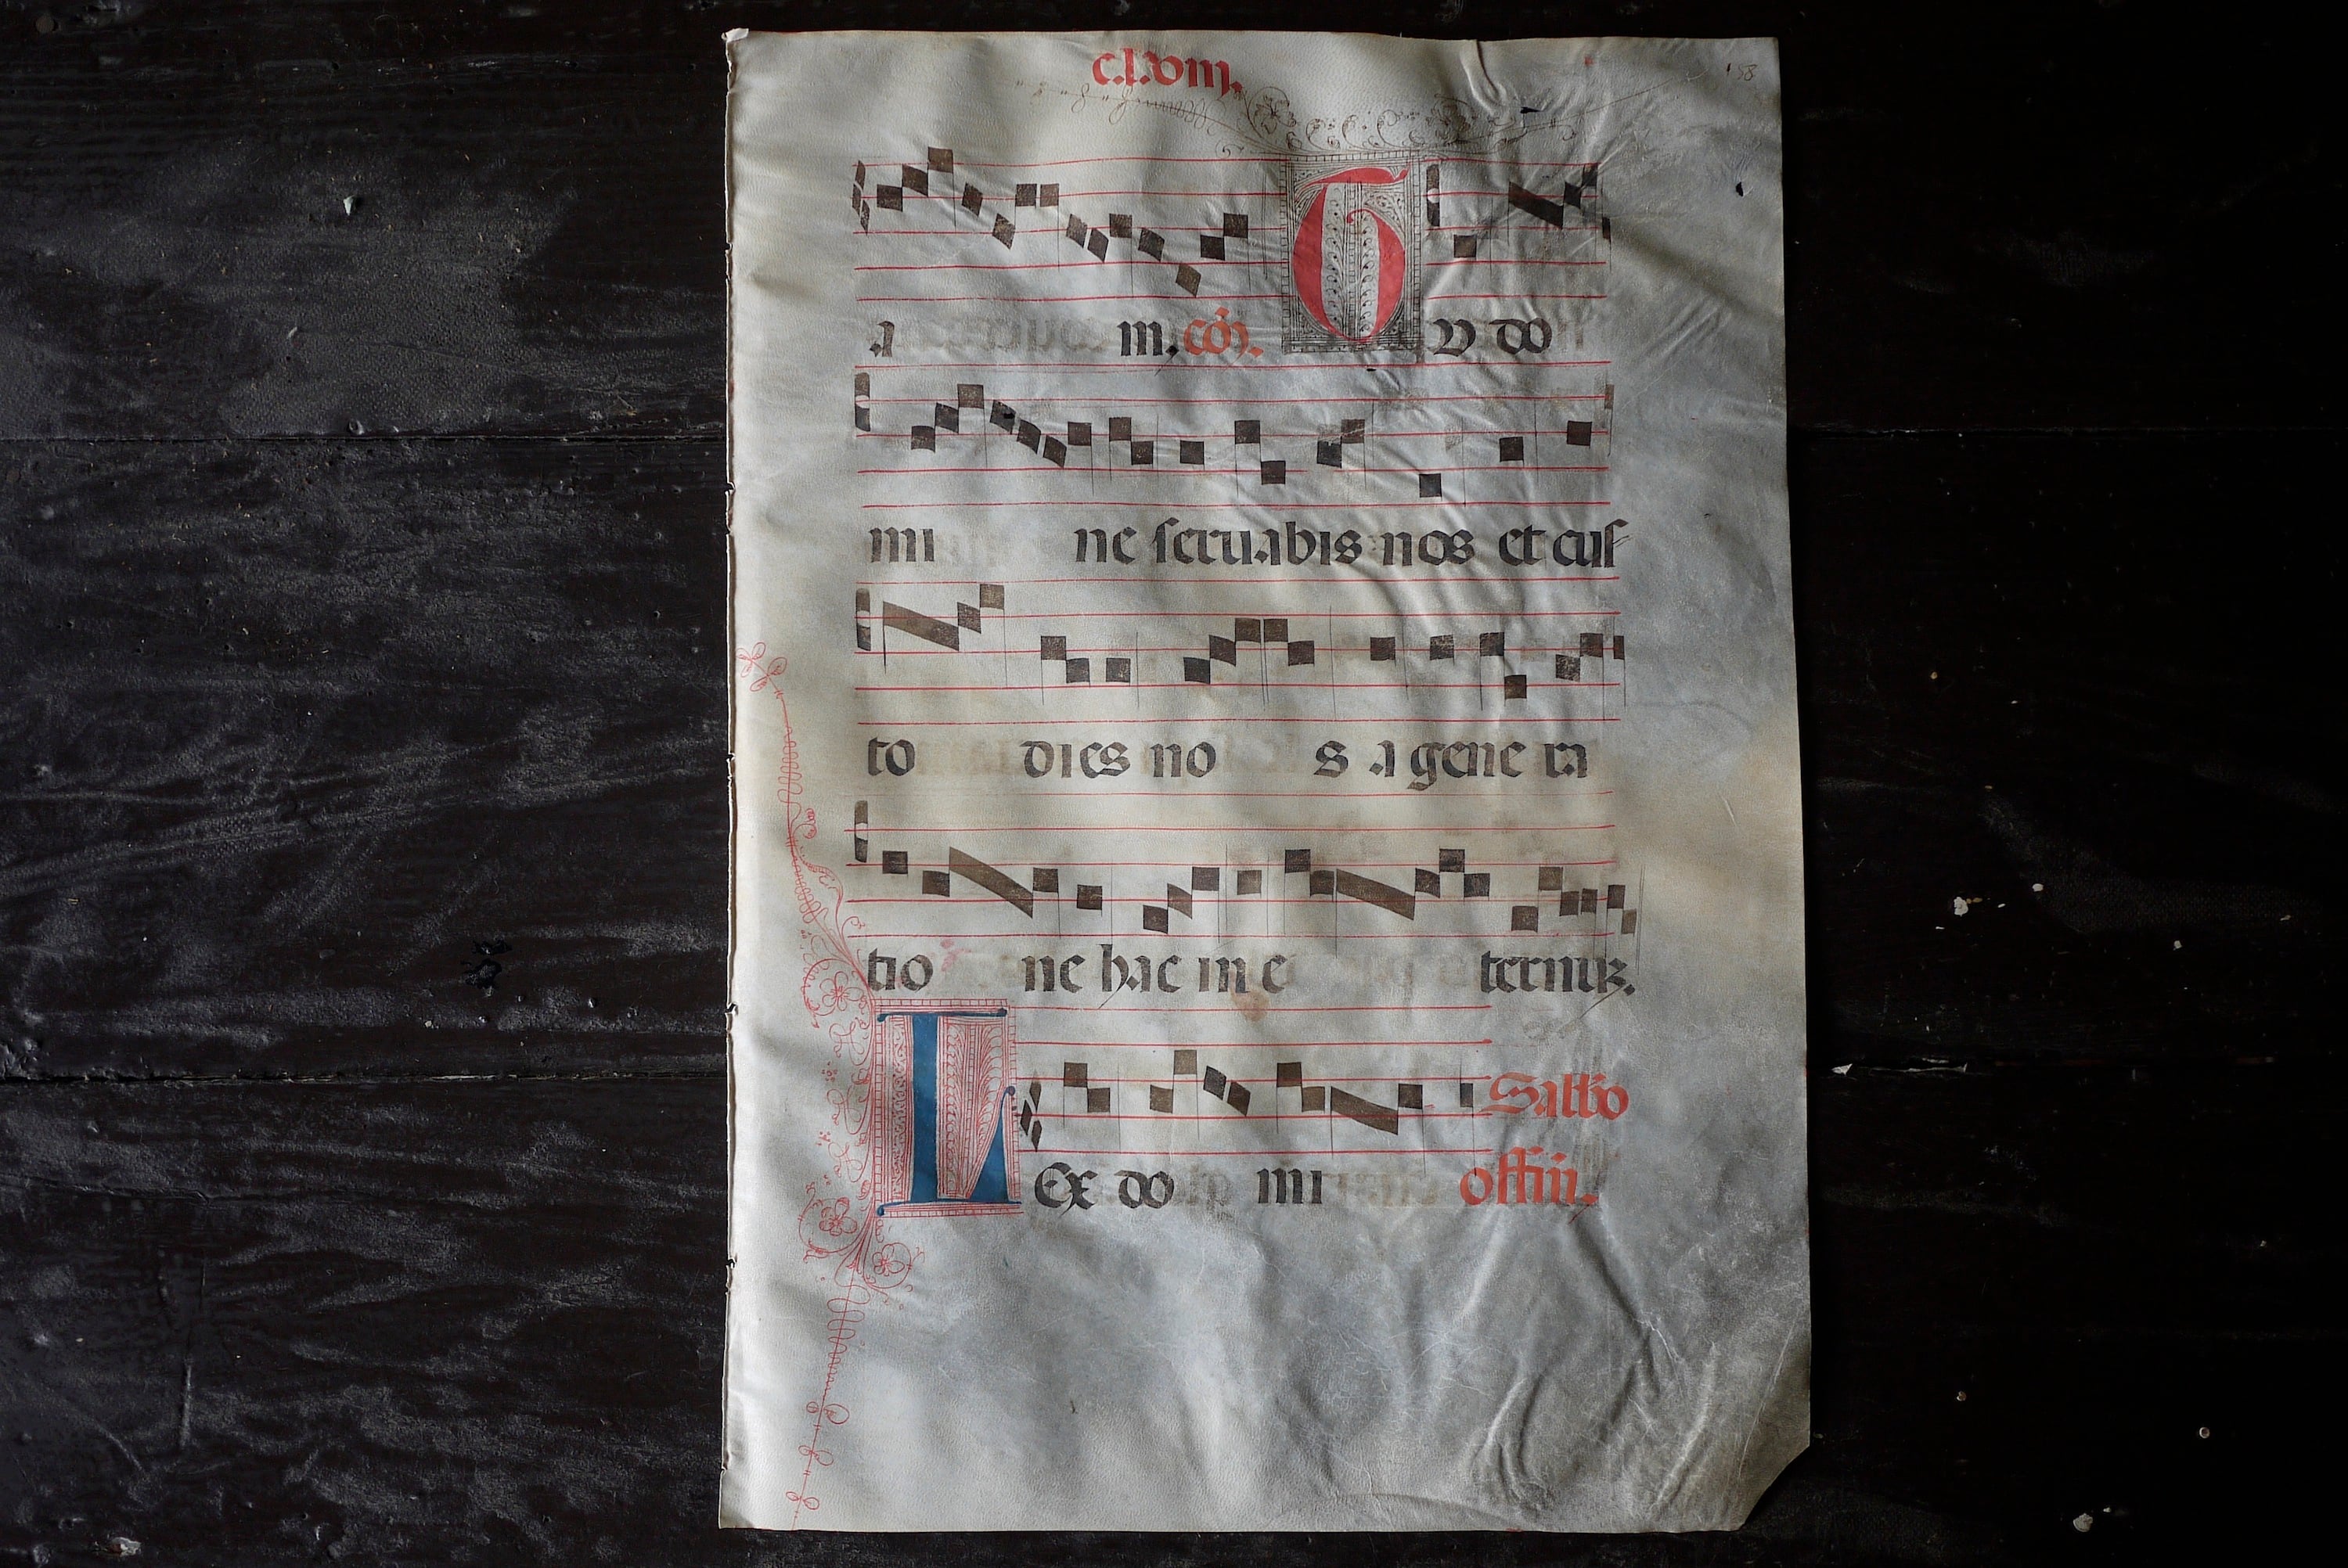 c.l.viij. 158
a m, coɱ̄. T v do
mi ne seruabis nos et cus
to dies no s a gene ra
tio ne hac in e ternuz.
L Ex do mi offiɱ̄.